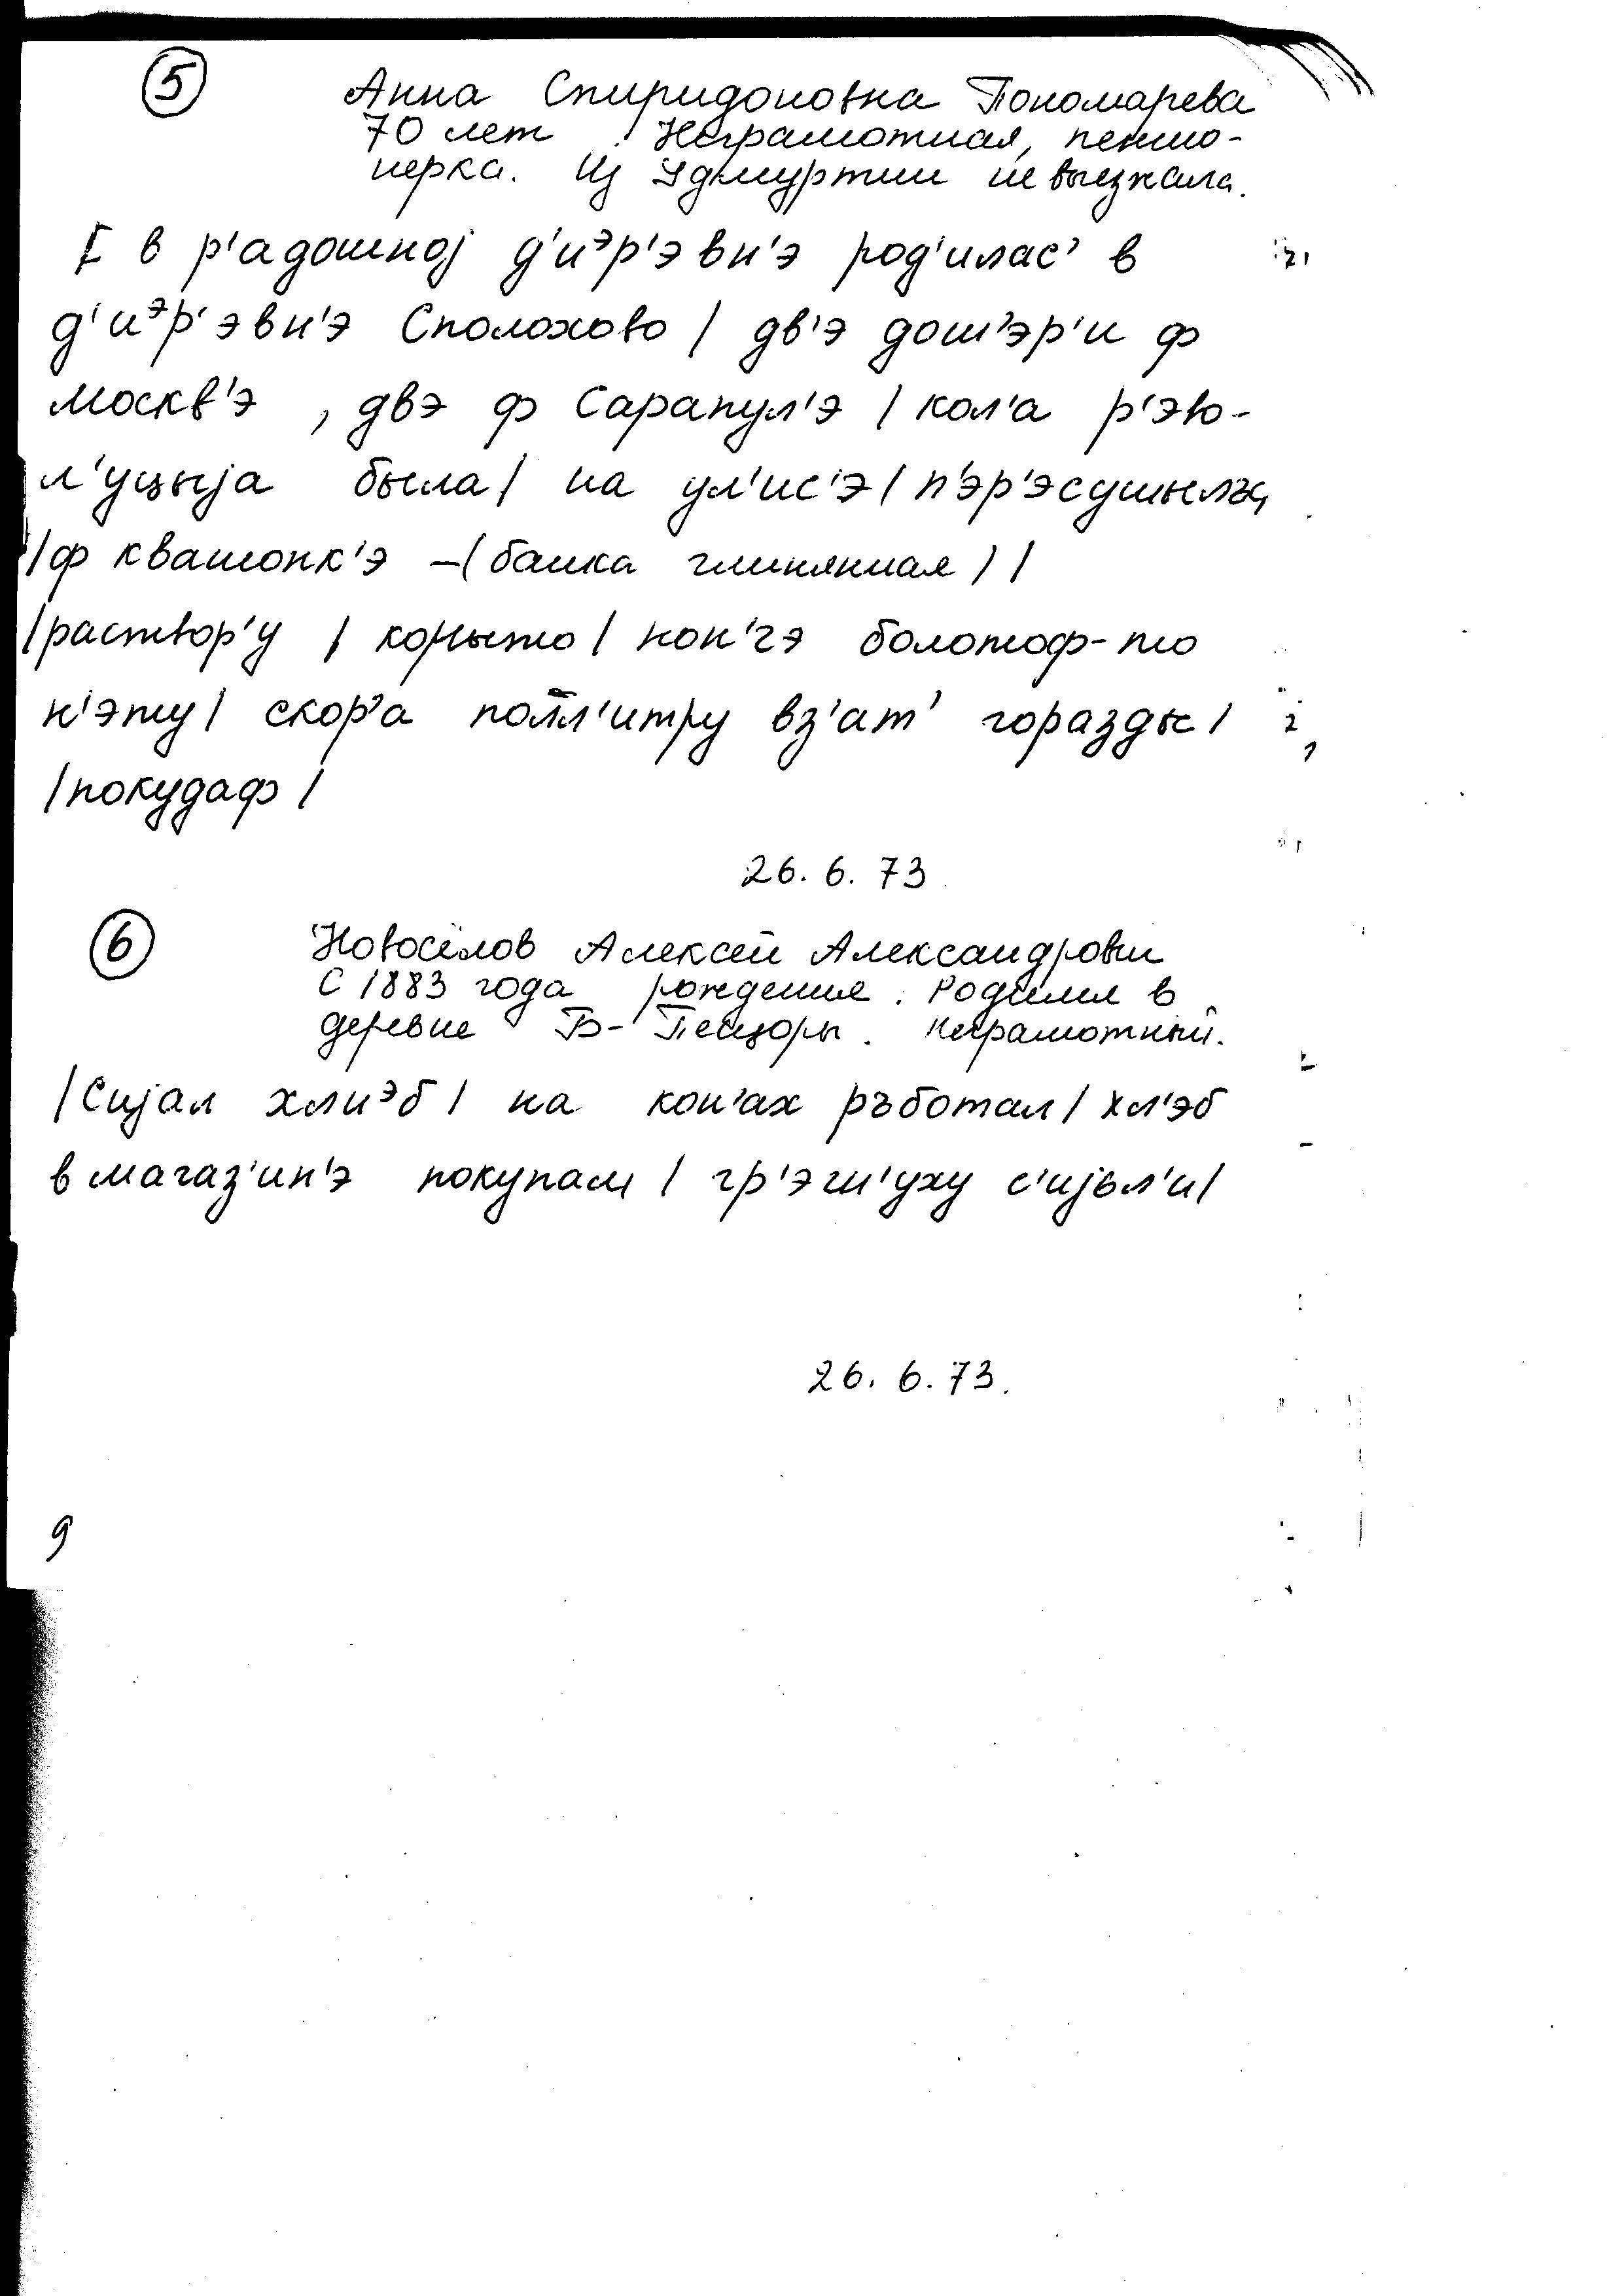 5
Анна Спиридоновна Пономарева
70 лет. Неграмотная, пенсио-
нерка. Из Удмуртии не выезжала.
[ в р'адошној д'иэр'эвн'э род'илас' в
д'иэр'эвн'э Сполохово / дв'э дош'эр'и ф
Москв'э, двэ ф Сарапул'э / кол'а р'эю-
л'уцыја была / на ул'ис'э / п'эр'эсушылъ,
/ ф квашонк'э – (банка глинянная) /
/ раствор'у / корыто / нон'гэ болотоф-то
н'эту / скор'а полл'итру вз'ат' горазды /
/ покудаф /
26. 6. 73
6
Новосёлов Алексей Александрович
С 1883 года рождения. Родился в
деревне Б- . Неграмотный.
/ Сијал хлиэб / на кон'ах ръботал / хл'эб
в магаз'ин'э покупам / гр'эш'уху с'ијъл'и /
26. 6. 73.
9